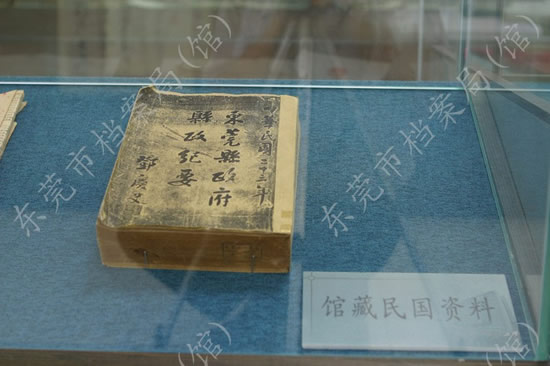 華民國二十三年
東莞縣政府
縣政紀要
鄧慶史
馆藏民国资料
东莞市档案局(馆)
东莞市档案局(馆)
(馆)
(馆)